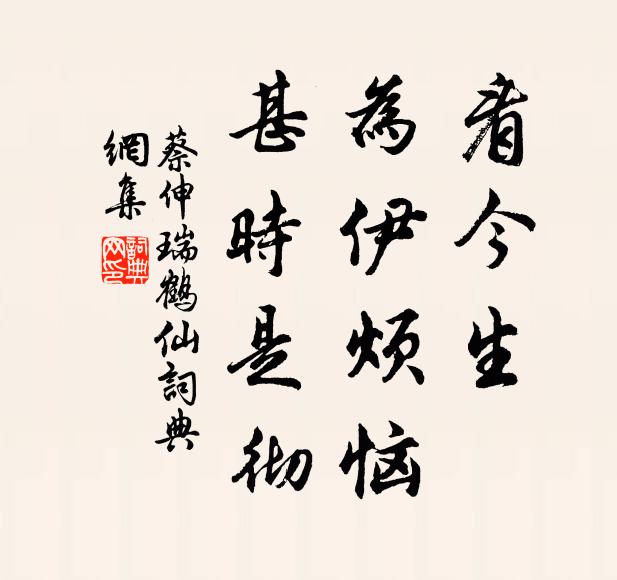 看今生
為伊烦恼
甚時是彻
蔡伸瑞鶴仙詞典
網集
詞典
网印